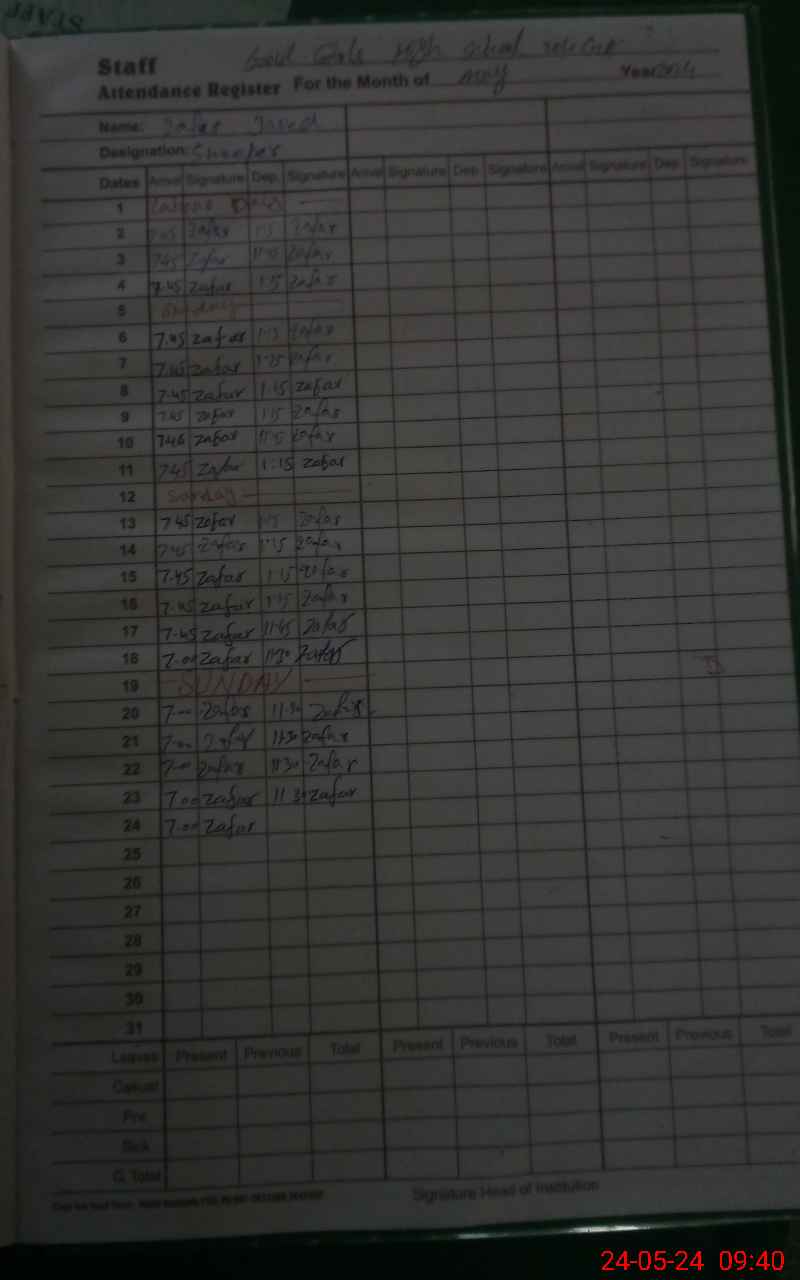 STAFF
Staff Girls High school
Attendance Register For the Month of may Year 2024
Name: Zafar Javed
Designation: Sweeper
Dates Arrival Signature Dep. Signature Arrival Signature Dep. Signature Arrival Signature Dep. Signature
1 Labour Day
2 7.45 Zafar 1:15 Zafar
3 7.45 Zafar Zafar
4 7.45 Zafar 1:15 Zafar
5 Sunday
6 7.45 Zafar 1:15 Zafar
7 7.45 Zafar 1:15 Zafar
8 7.45 Zafar 1:15 Zafar
9 7.45 Zafar 1:15 Zafar
10 746 Zafar Zafar
11 745 Zafar 1:15 Zafar
12 Sunday
13 7.45 Zafar 1:15 Zafar
14 7.45 Zafar 1:15 Zafar
15 7.45 Zafar 1:15 Zafar
16 7.45 Zafar 1:15 Zafar
17 7.45 Zafar 11:45 Zafar
18 7.00 Zafar 11:30 Zafar
19 SUNDAY
20 7.00 Zafar 11:30 Zafar
21 7.00 Zafar 11:30 Zafar
22 7.00 Zafar 11:30 Zafar
23 7.00 Zafar 11:30 Zafar
24 7.00 Zafar
25
26
27
28
29
30
31
Leaves Present Previous Total Present Previous Total Present Previous Total
Casual
Prv.
Sick
G. Total
Signature Head of Institution
24-05-24 09:40